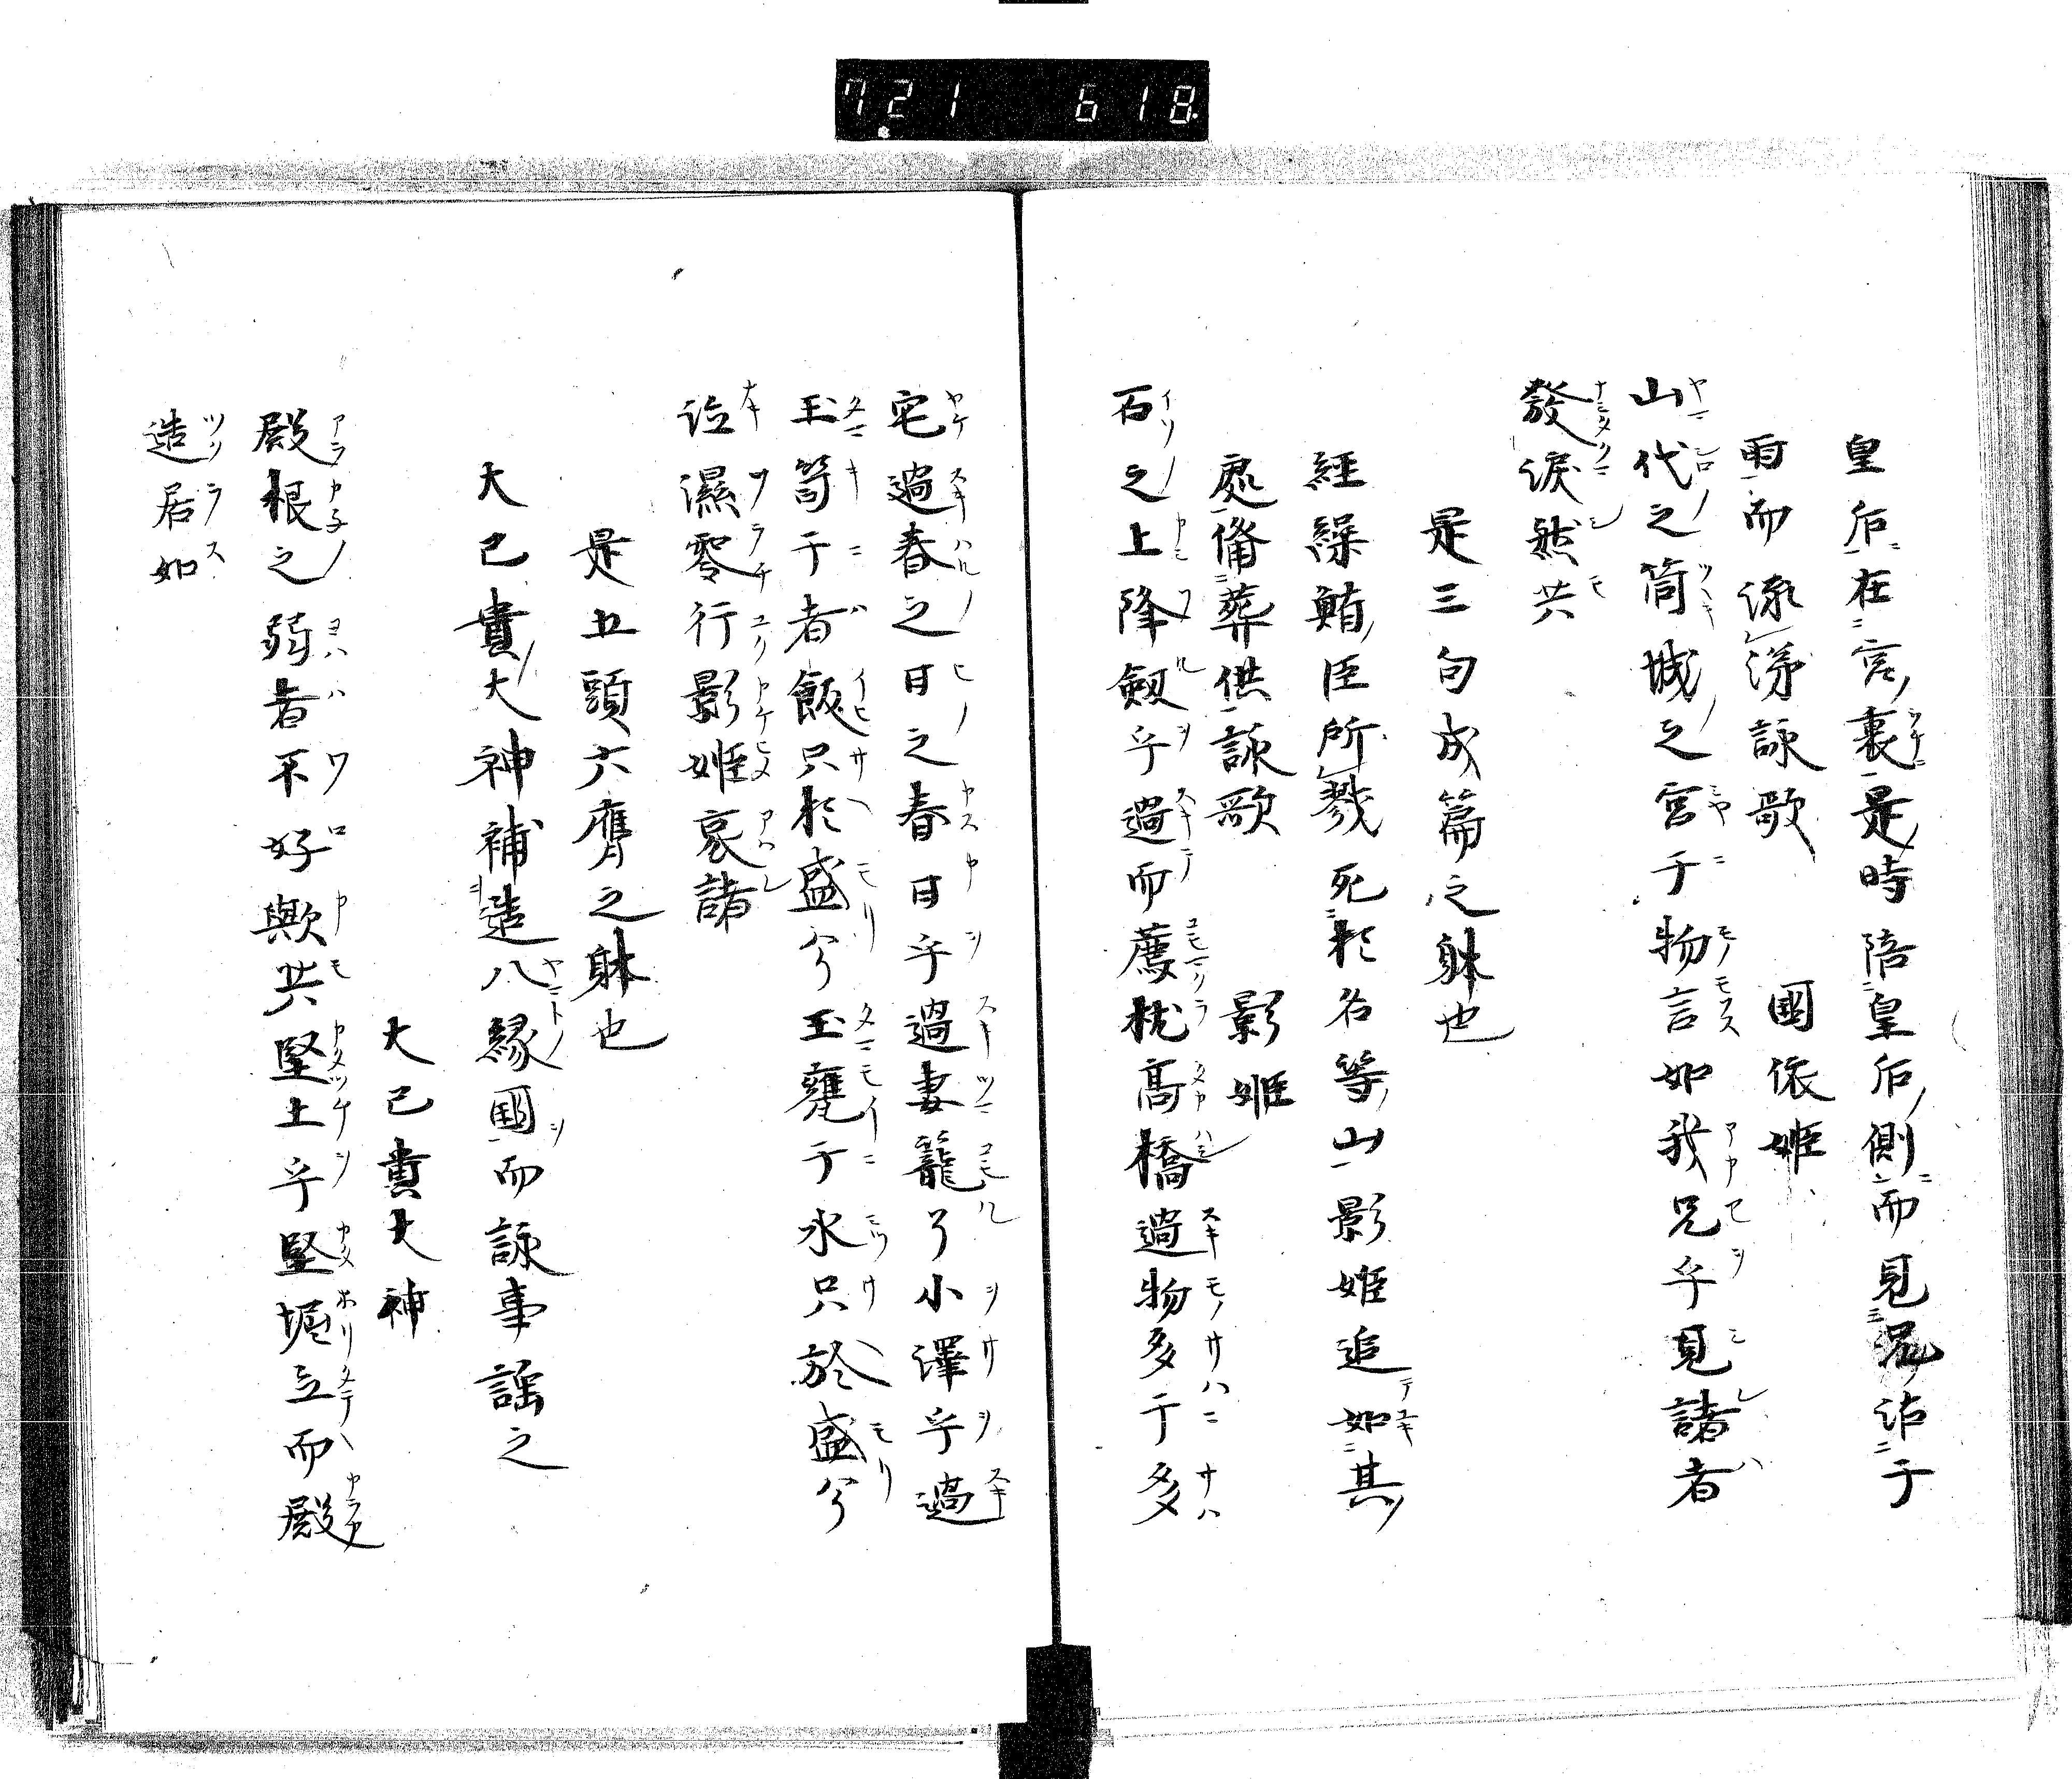 721 618
皇后在宮裏是時陪皇后側而見兄沾于
雨而流涕詠歌 國依姫
山代之筒城之宮于物言如我兄乎見諸者
發涙然共
是三句成篇之躰也
經繰鮪臣所戮死於名等山影姫追如其
處備葬供詠歌 影姫
石之上降劔乎過而薦枕高橋過物多于多
宅過春之日之春日乎過妻籠了小澤乎過
玉笥于者飯只於盛兮玉甕于水只於盛兮
泣濕零行影姫哀諸
是五頭六膺之躰也
大己貴大神補造八縁國而詠事謡之
大己貴大神
殿根之弱者不好歟共堅土乎堅堀立而殿
造居如